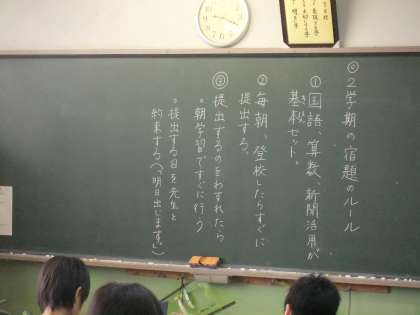 ◎２学期の宿題のルール
①国語、算数、新聞活用が
基本セット。
②毎朝、登校したらすぐに
提出する。
③提出するのをわすれたら
・朝学習ですぐに行う
・提出する日を先生と
約束する（「明日出します。」）